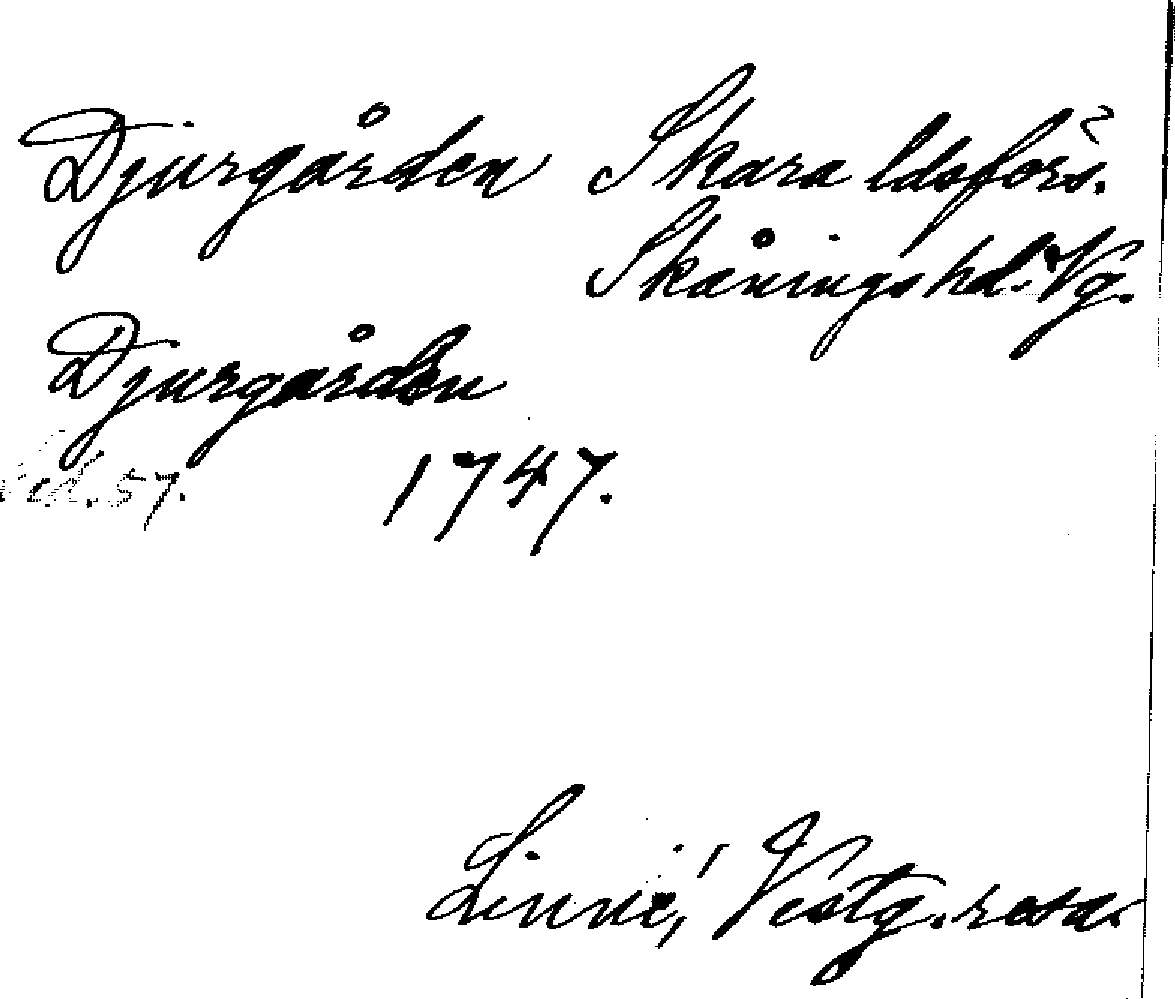 Djurgården Skara ldsförs.
Skånings hd. Vg.
Djurgården
sid. 57. 1747.
Linné, Vestg. resa.